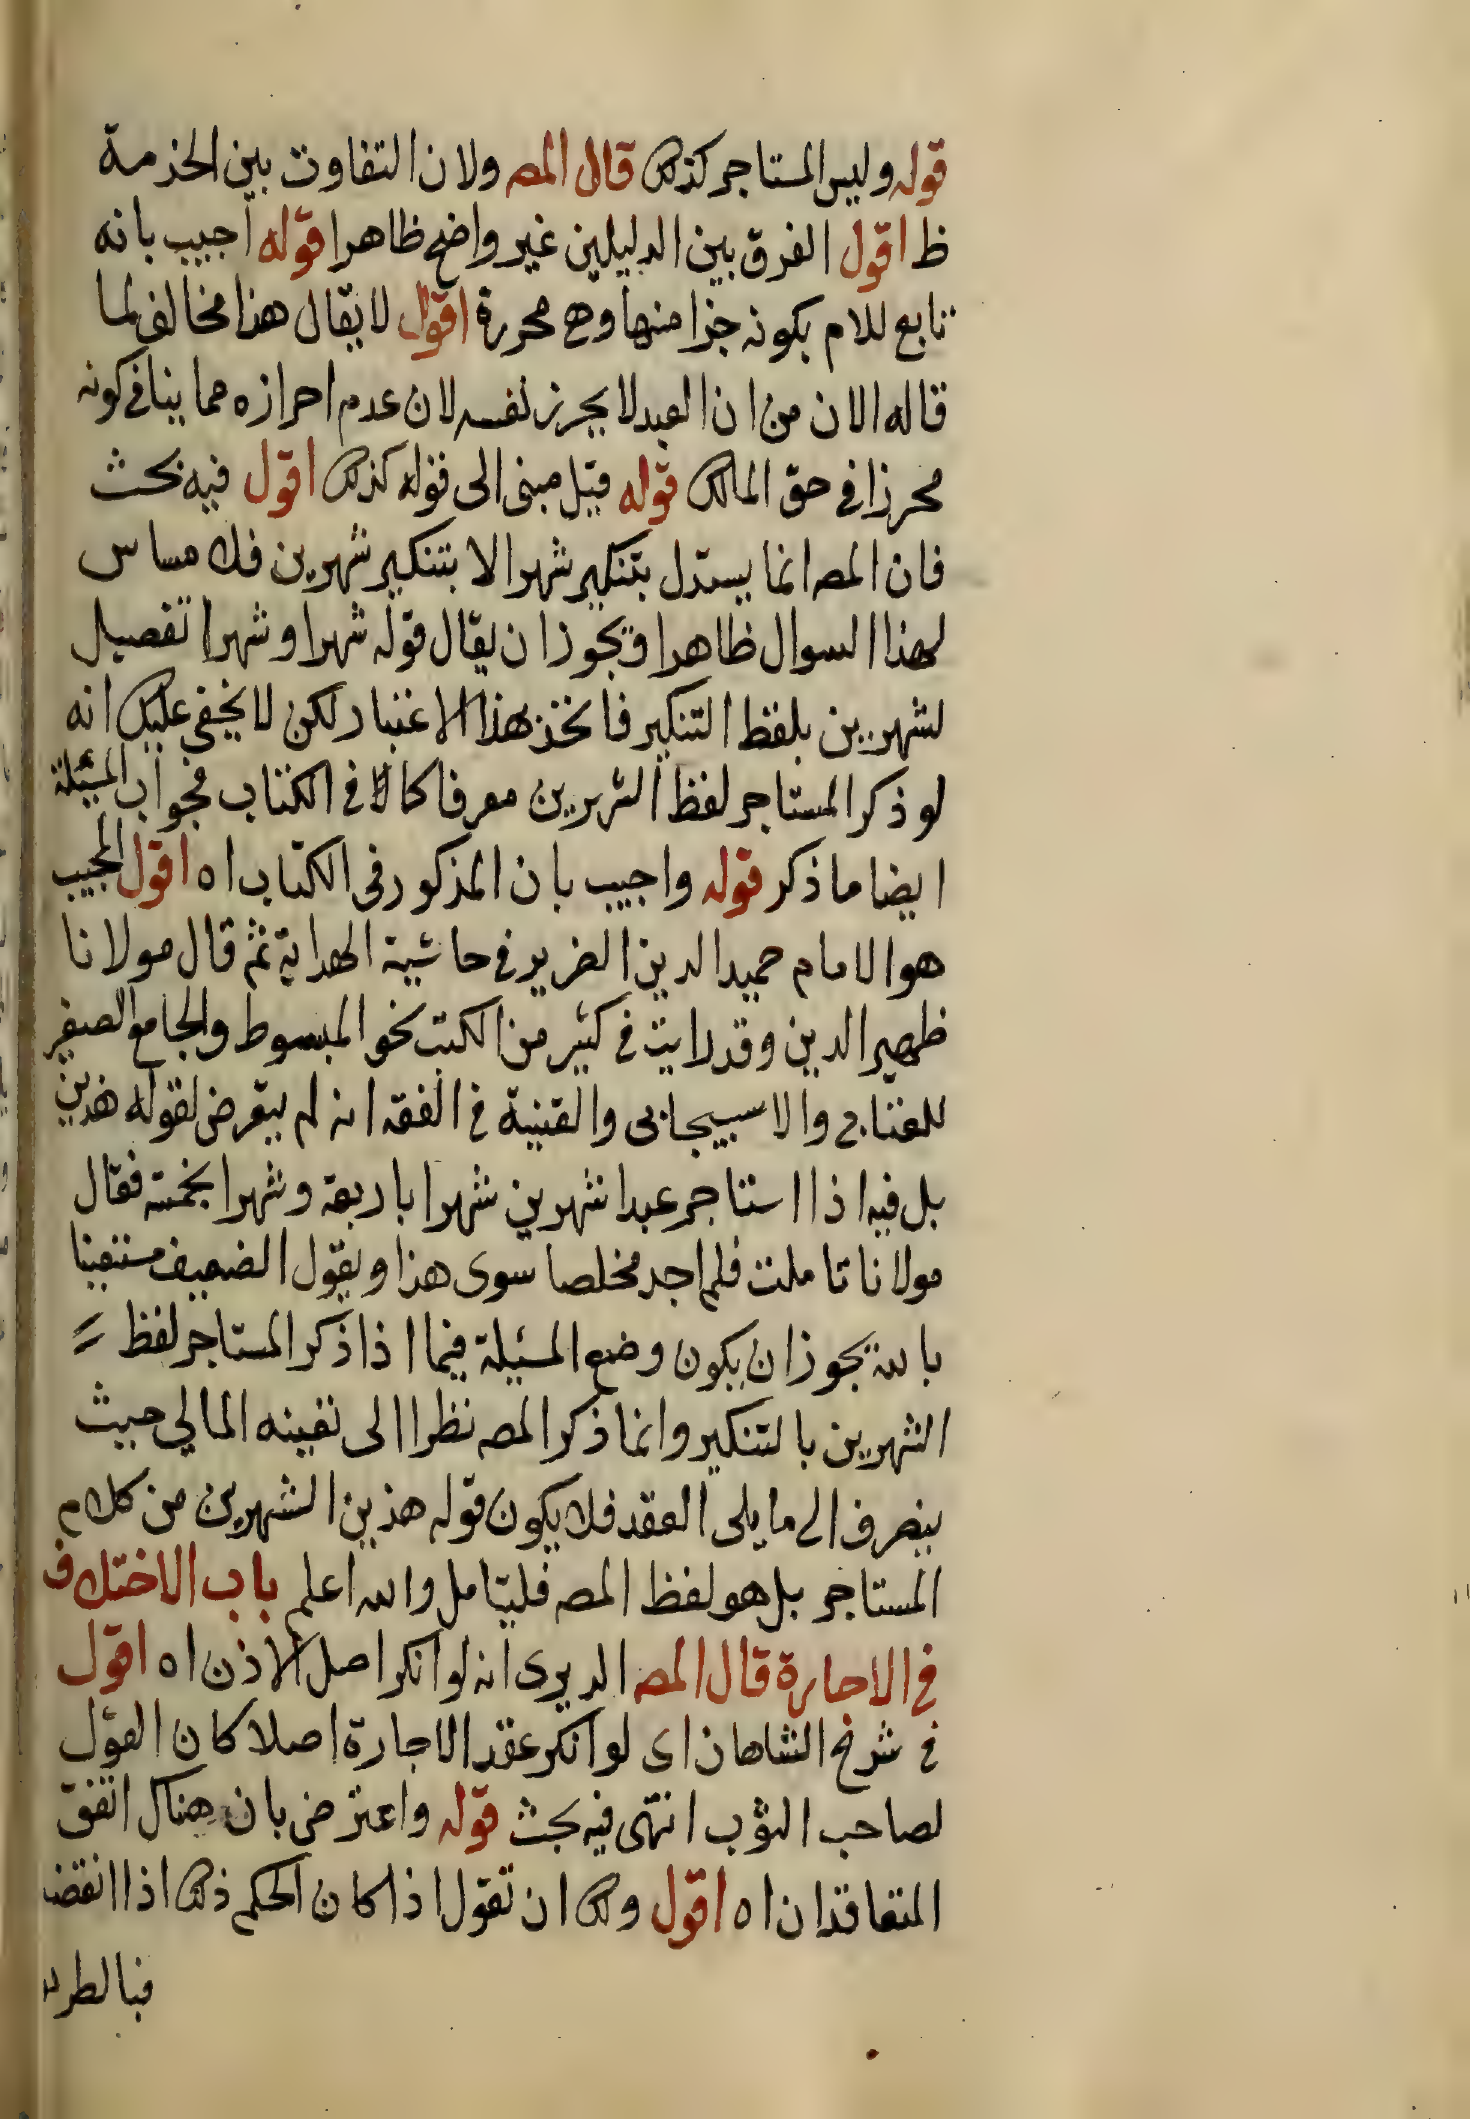 قوله وليس المستاجر كذلك قال المص ولان التفاوت بين الخذمة
ظ اقول الفرق بين الدليلين غير واضح ظاهرا قوله اجيب بانه
تابع للام بكونه جزا منها وهى محررة اقول لا يقال هذا مخالف لما
قاله الان من ان العبد لا يحرز نفسه لان عدم احرازه مما ينافى كونه
محرزا فى حق المالك قوله قيل مبنى الى قوله كذلك اقول فيه بحث
فان المص انما يستدل بتنكير شهرا لا بتنكير شهرين فلا مساس
لهذا السوال ظاهرا ويجوز ان يقال قوله شهرا وشهرا تفصيل
لشهرين بلفظ التنكير فاتخذ بهذا الاعتبار لكن لا يخفى عليك انه
لو ذكر المستاجر لفظ الشهرين معرفا كما فى الكتاب فجواب المسئلة
ايضا ما ذكر قوله واجيب بان المذكور فى الكتاب اه اقول المجيب
هو الامام حميد الدين الضرير فى حاشية الهداية ثم قال مولانا
ظهير الدين وقد رايت فى كثير من الكتب نحو المبسوط والجامع الصغير
للعتابى والاسبيجابى والقنية فى الفقه انه لم يتعرض لقوله هذين
بل فيه اذا استاجر عبدا شهرين شهرا باربعة وشهرا بخمسة فقال
مولانا تاملت فلم اجد مخلصا سوى هذا ويقول الضعيف مستعينا
بالله يجوز ان يكون وضع المسئلة فيما اذا ذكر المستاجر لفظ
الشهرين بالتنكير وانما ذكر المص نظرا الى تعينه المالي حيث
ينصرف الى ما يلى العقد فلا يكون قوله هذين الشهرين من كلام
المستاجر بل هو لفظ المص فليتامل والله اعلم باب الاختلاف
فى الاجارة قال المص الا يرى انه لو انكر اصل الاذن اه اقول
فى شرح الشاهان اى لو انكر عقد الاجارة اصلا كان القول
لصاحب الثوب انتهى فيه بحث قوله واعترض بان هناك اتفق
المتعاقدان اه اقول ولك ان تقول اذا كان الحكم ذلك اذا انقضـ
فبالطريـ